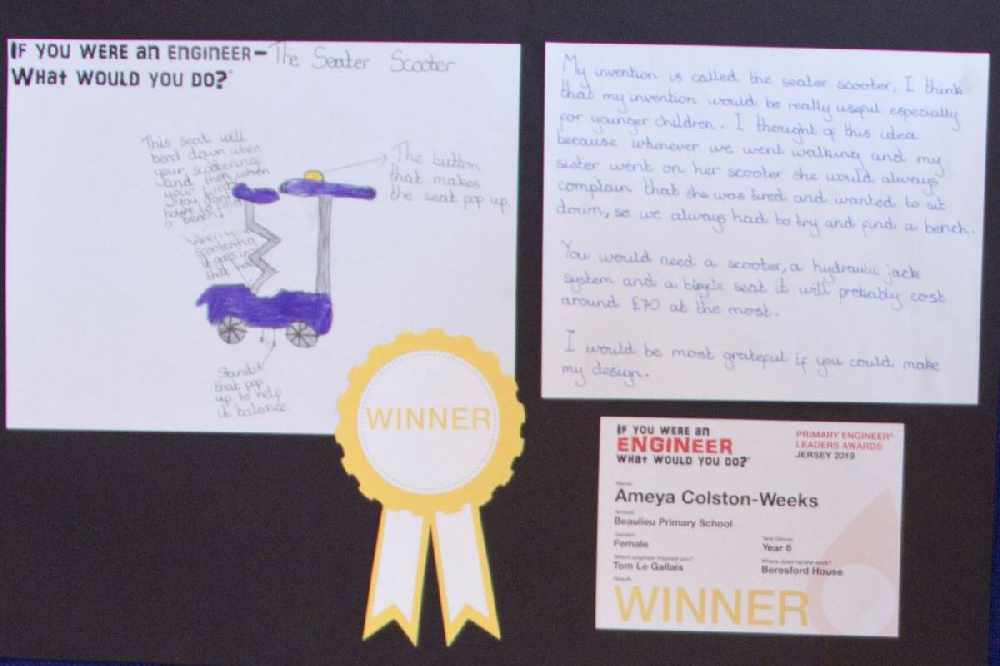 IF YOU WERE an ENGINEER- The Seater Scooter
WHat WOULD YOU DO?
This seat will
bend down when
your scootering
and then when
your
you don't
have to
a bench!
The button
that makes
the seat pop up.
it goes in
that
that pop
up to help
it balance
WINNER
My invention is called the seater scooter, I think
that my invention would be really useful especially
for younger children. I thought of this idea
because whenever we went walking and my
sister went on her scooter she would always
complain that she was tired and wanted to sit
down, so we always had to try and find a bench.
You would need a scooter, a hydraulic jack
system and a bicycle seat it will probably cost
around £70 at the most.
I would be most grateful if you could make
my design.
IF YOU WERE an
ENGINEER
WHat WOULD YOU DO?
PRIMARY ENGINEER®
LEADERS AWARDS
JERSEY 2019
Name
Ameya Colston-Weeks
School
Beaulieu Primary School
Gender
Female
Year 6
Tom Le Gallais
Beresford House
Result
WINNER